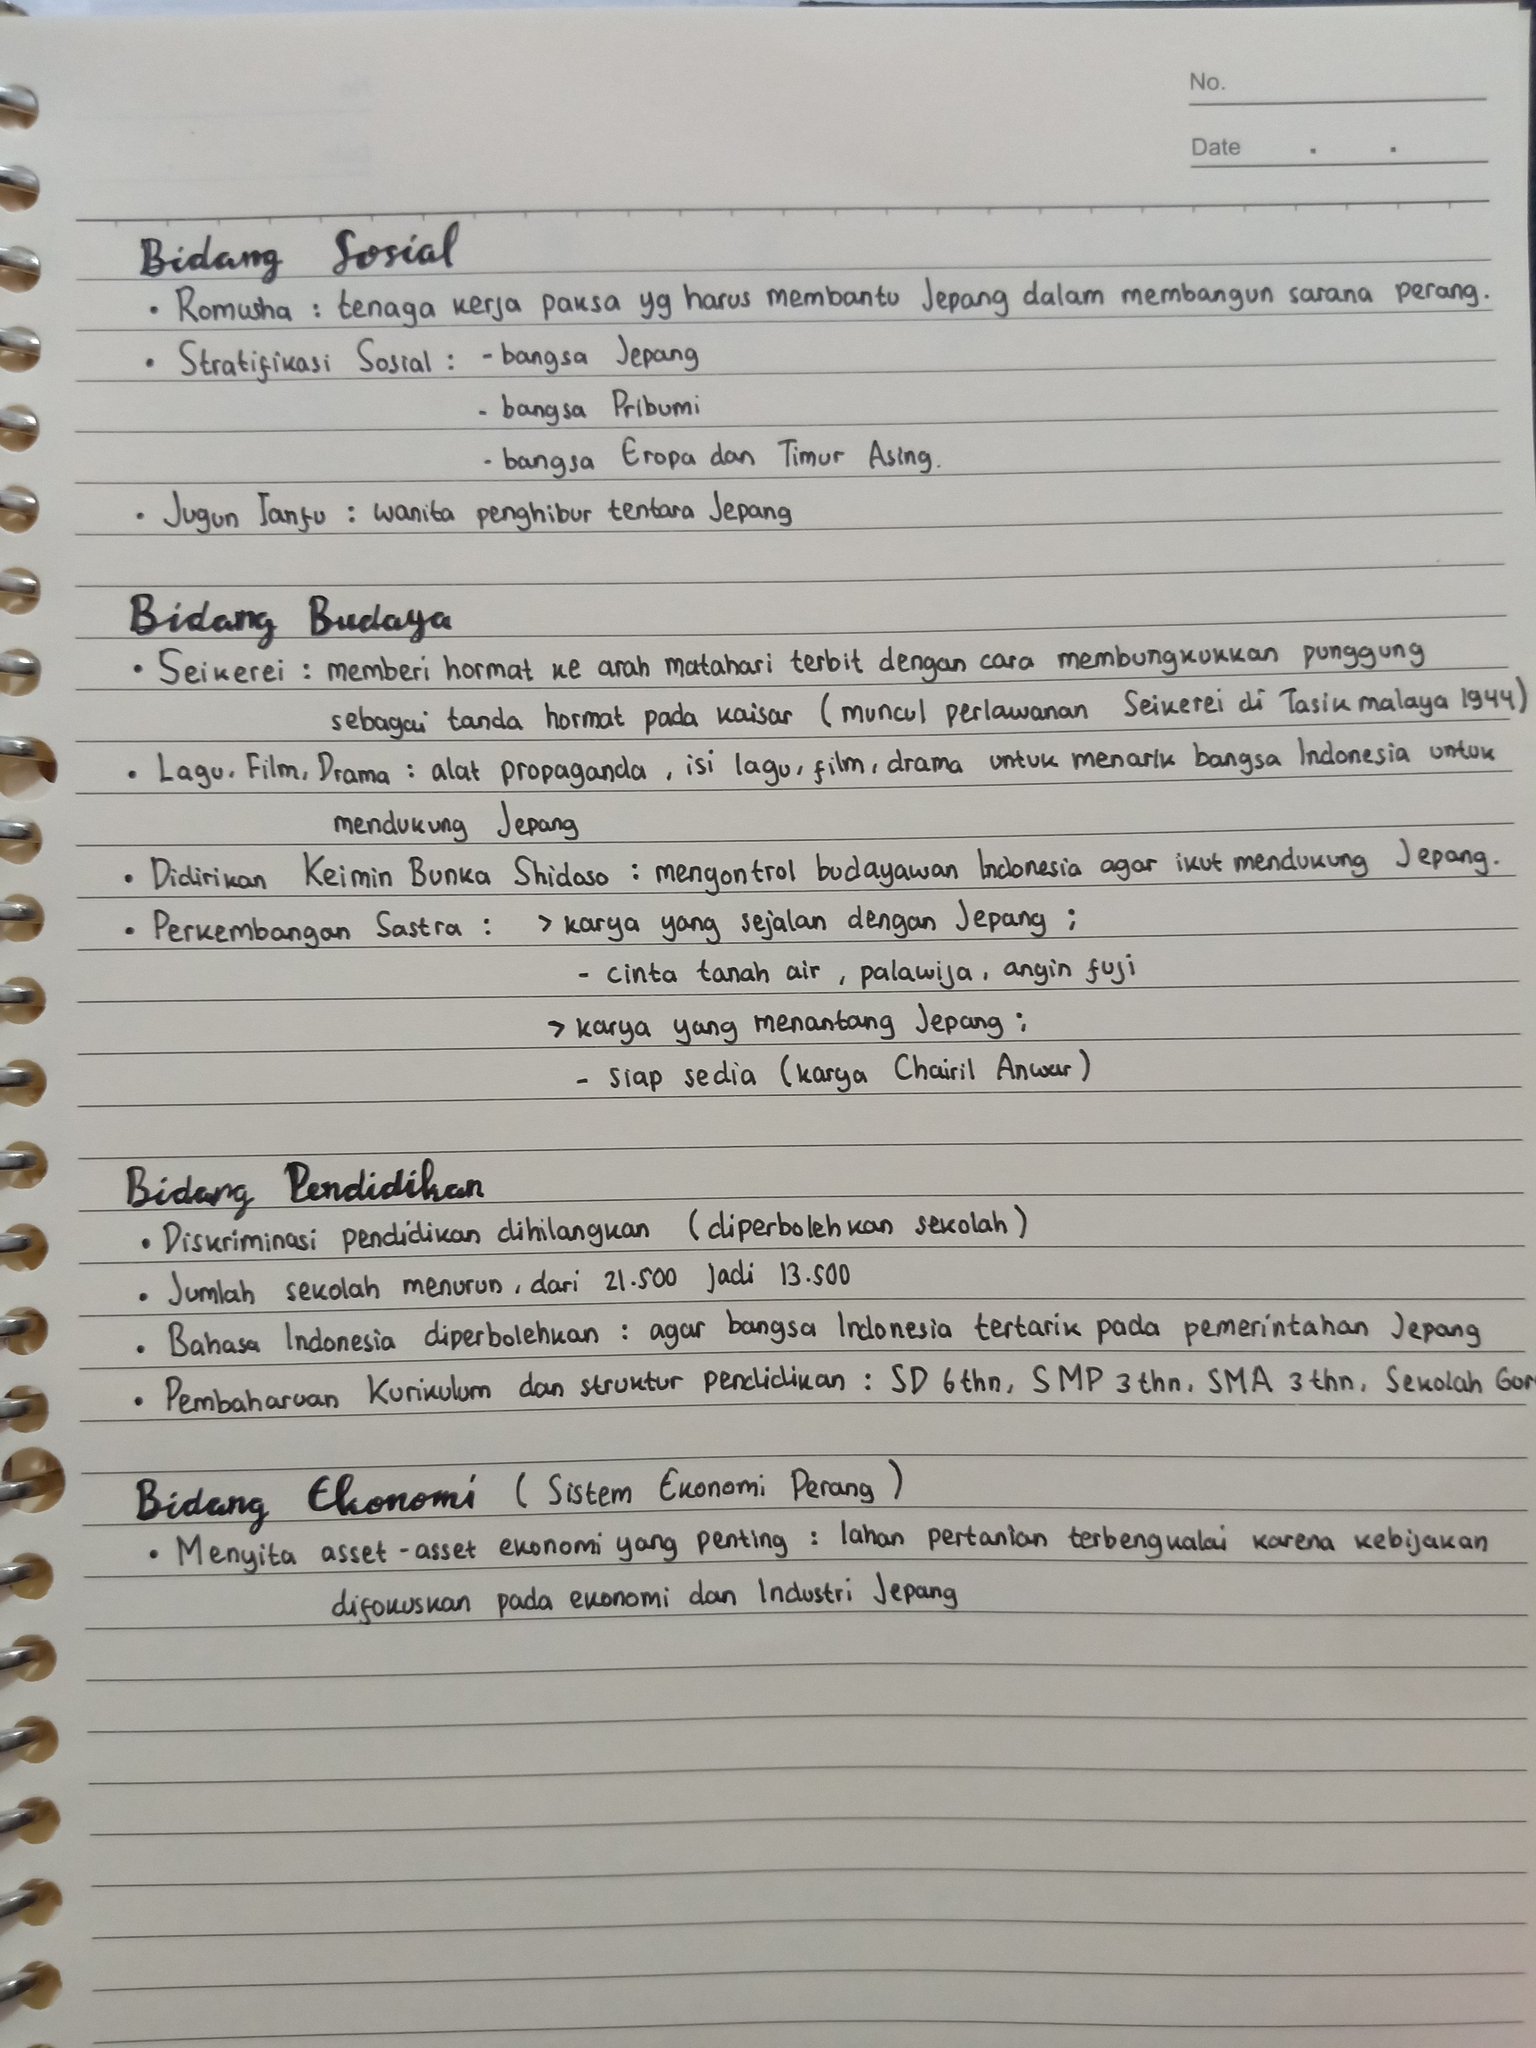 No.
Date . .
Bidang Sosial
• Romusha : tenaga kerja paksa yg harus membantu Jepang dalam membangun sarana perang.
• Stratifikasi Sosial : - bangsa Jepang
- bangsa Pribumi
- bangsa Eropa dan Timur Asing.
• Jugun Ianfu : wanita penghibur tentara Jepang
Bidang Budaya
• Seikerei : memberi hormat ke arah matahari terbit dengan cara membungkukkan punggung
sebagai tanda hormat pada kaisar (muncul perlawanan Seikerei di Tasik malaya 1944)
• Lagu, Film, Drama : alat propaganda, isi lagu, film, drama untuk menarik bangsa Indonesia untuk
mendukung Jepang
• Didirikan Keimin Bunka Shidoso : mengontrol budayawan Indonesia agar ikut mendukung Jepang.
• Perkembangan Sastra : > karya yang sejalan dengan Jepang ;
- cinta tanah air, palawija, angin fuji
> karya yang menantang Jepang ;
- siap sedia (karya Chairil Anwar)
Bidang Pendidikan
• Diskriminasi pendidikan dihilangkan (diperbolehkan sekolah)
• Jumlah sekolah menurun, dari 21.500 jadi 13.500
• Bahasa Indonesia diperbolehkan : agar bangsa Indonesia tertarik pada pemerintahan Jepang
• Pembaharuan Kurikulum dan struktur pendidikan : SD 6 thn, SMP 3 thn, SMA 3 thn, Sekolah
Bidang Ekonomi (Sistem Ekonomi Perang)
• Menyita asset-asset ekonomi yang penting : lahan pertanian terbengkalai karena kebijakan
difokuskan pada ekonomi dan Industri Jepang